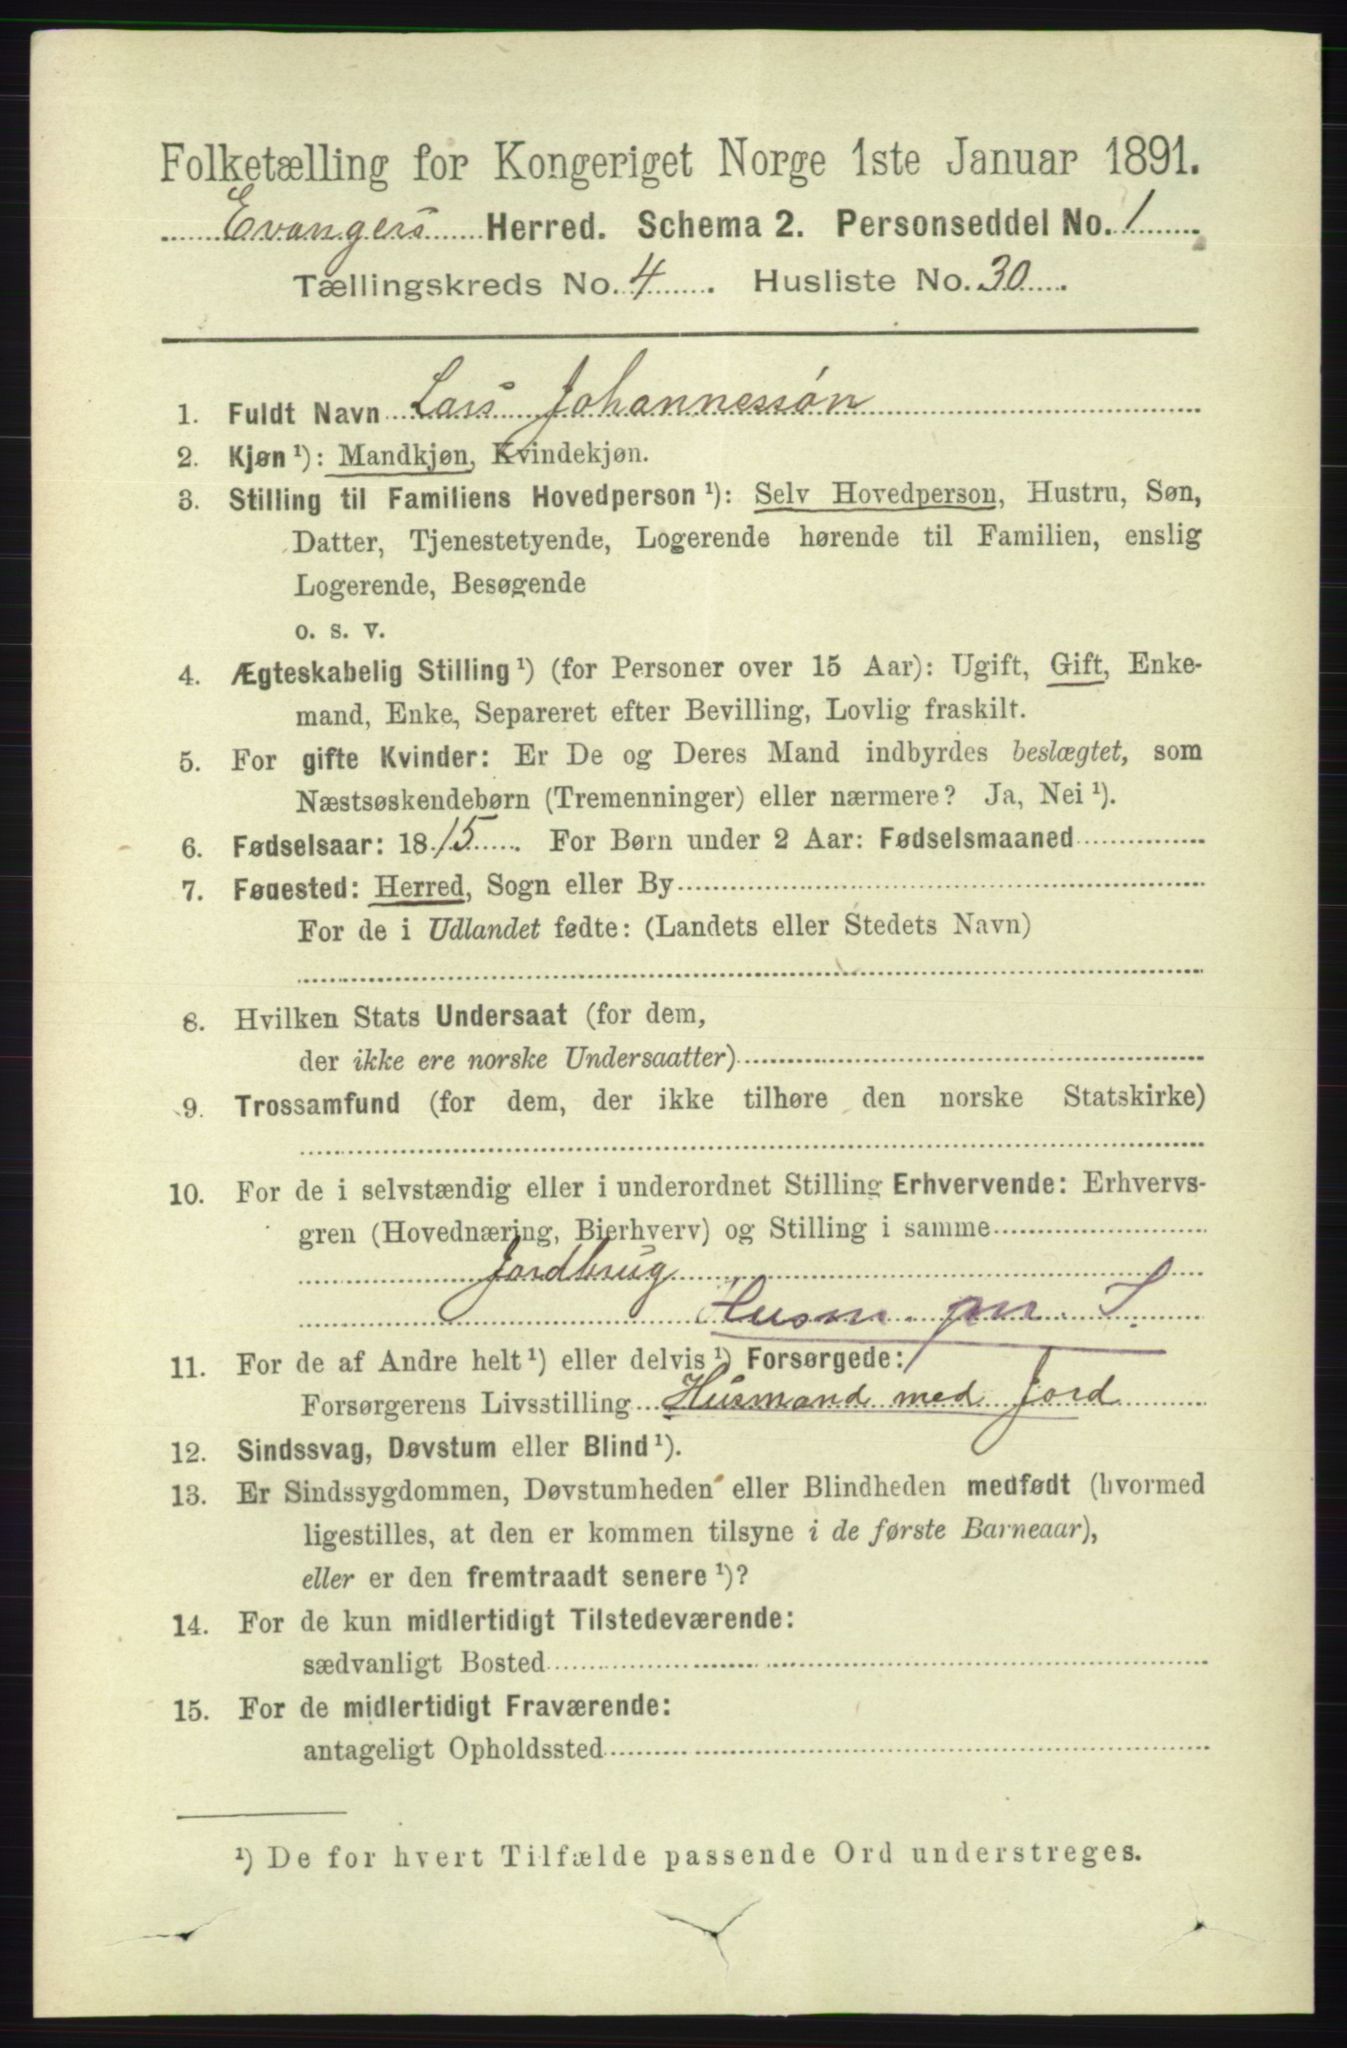 Folketælling for Kongeriget Norge 1ste Januar 1891.
Evangers Herred. Schema 2. Personseddel No. 1
Tællingskreds No. 4. Husliste No. 30.
1. Fuldt Navn Lars Johannessøn
2. Kjøn ¹): Mandkjøn, Kvindekjøn.
3. Stilling til Familiens Hovedperson ¹): Selv Hovedperson, Hustru, Søn,
Datter, Tjenestetyende, Logerende hørende til Familien, enslig
Logerende, Besøgende
o. s. v.
4. Ægteskabelig Stilling ¹) (for Personer over 15 Aar): Ugift, Gift, Enke-
mand, Enke, Separeret efter Bevilling, Lovlig fraskilt.
5. For gifte Kvinder: Er De og Deres Mand indbyrdes beslægtet, som
Næstsøskendebørn (Tremenninger) eller nærmere? Ja, Nei ¹).
6. Fødselsaar: 1815. For Børn under 2 Aar: Fødselsmaaned
7. Føuested: Herred, Sogn eller By
For de i Udlandet fødte: (Landets eller Stedets Navn)
8. Hvilken Stats Undersaat (for dem,
der ikke ere norske Undersaatter)
9. Trossamfund (for dem, der ikke tilhøre den norske Statskirke)
10. For de i selvstændig eller i underordnet Stilling Erhvervende: Erhvervs-
gren (Hovednæring, Bierhverv) og Stilling i samme
Jordbrug
Husm. m. J.
11. For de af Andre helt ¹) eller delvis ¹) Forsørgede:
Forsørgerens Livsstilling Husmand med Jord
12. Sindssvag, Døvstum eller Blind ¹).
13. Er Sindssygdommen, Døvstumheden eller Blindheden medfødt (hvormed
ligestilles, at den er kommen tilsyne i de første Barneaar),
eller er den fremtraadt senere ¹)?
14. For de kun midlertidigt Tilstedeværende:
sædvanligt Bosted
15. For de midlertidigt Fraværende:
antageligt Opholdssted
¹) De for hvert Tilfælde passende Ord understreges.